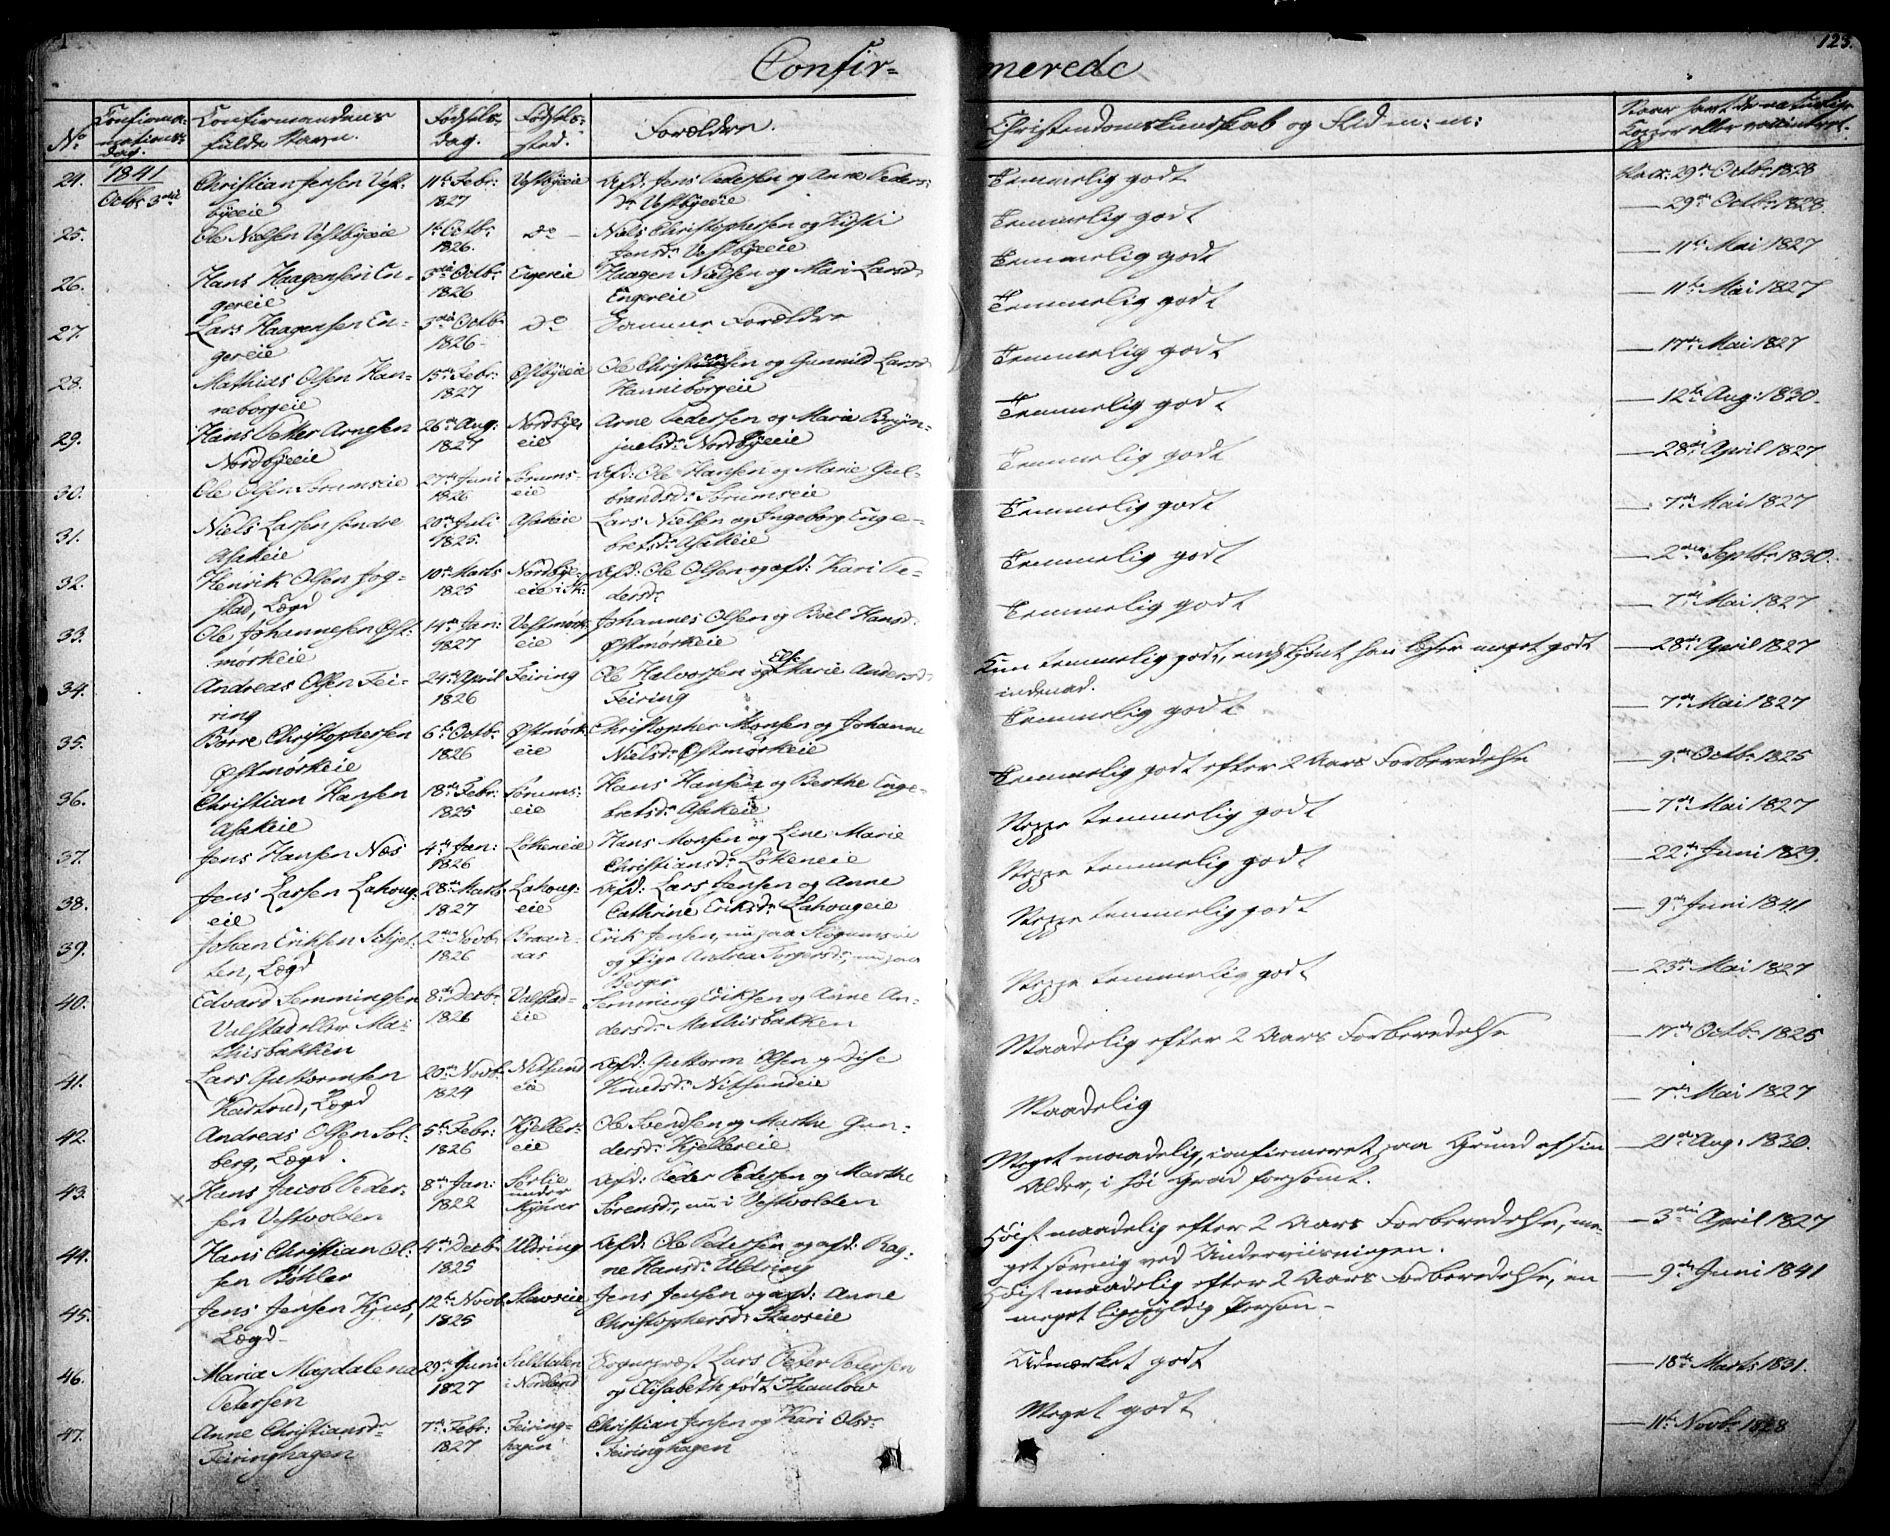 Confir=
merede
123.
No
Confirma-
tions-
dag.
Confirmandens
fulde Navn.
Fødsels-
dag.
Fødsels-
sted.
Forældre.
Christendomskundskab og Flid m: m:
Naar havt de naturlige
Kopper eller vaccineret.
24.
1841
Octbr 3die
Christian Jensen Vest-
byeeie
11te Febr:
1827
Vestbyeeie
Afd: Jens Pedersen og Anne Peders-
dr Vestbyeeie
Temmelig godt
Vacc: 29de Octbr 1828
25.
Ole Nielsen Vestbyeeie
1ste Octbr
1826.
Do
Niels Christophersen og Kisti
Jensdr Vestbyeeie
Temmelig godt
— 29de Octbr 1828
26.
Hans Haagensen En-
gereie
3die Octbr
1826
Engereie
Haagen Nielsen og Mari Larsdr
Engereie
Temmelig godt
— 11te Mai 1827
27.
Lars Haagensen En-
gereie
3die Octbr
1826
Do
Samme Forældre
Temmelig godt
— 11te Mai 1827
28.
Mathias Olsen Han-
neborgeie
15de Febr:
1827
Østbyeeie
Ole Christiansen og Gunnild Larsd
Hanneborgeie
Temmelig godt
— 17de Mai 1827
29.
Hans Petter Arnesen
Nordbyeeie
26de Aug:
1827
Nordbye-
eie
Arne Pedersen og Marie Bryn-
juelsdr Nordbyeeie
Temmelig godt
— 12te Aug: 1830
30.
Ole Olsen Sørumseie
27de Juni
1826
Sørums-
eie
Afd: Ole Hansen og Marie Gul-
brandsdr Sørumseie
Temmelig godt
— 28de April 1827
31.
Niels Larsen søndre
Asakeie
20de Juli
1825
Asakeie
Lars Nielsen og Ingeborg Enge-
bretsdr Asakeie
Temmelig godt
— 7de Mai 1827
32.
Henrik Olsen Jog-
stad, Lægd
10de Marts
1825
Nordbye-
eie i Sk:
Afd: Ole Olsen og afd: Kari Pe-
dersdr
Temmelig godt
— 2den Septbr 1830.
33.
Ole Johannesen Øst-
mørkeie
14de Jan:
1827
Vestmørk-
eie
Johannes Olsen og Boel Hansdr
Østmørkeie
Temmelig godt
— 7de Mai 1827
34.
Andreas Olsen Fei-
ring
24de April
1826
Feiring
Ole Halvorsen og Else Marie Andersdr
Feiring
Kun temmelig godt, endskjønt han læser meget godt
indenad.
— 28de April 1827
35.
Børre Christophersen
Østmørkeie
6te Octbr
1826
Østmørk-
eie
Christopher Monsen og Johanne
Nielsdr Østmørkeie
Temmelig godt
— 7de Mai 1827
36.
Christian Hansen
Asakeie
18de Febr:
1825
Sørums-
eie
Hans Hansen og Berthe Enge-
bretsdr Asakeie
Temmelig godt efter 2 Aars Forberedelse
— 9de Octbr 1825
37.
Jens Hansen Næs
4de Jan:
1826
Løkeneie
Hans Monsen og Line Marie
Christiansdr Løkeneie
Neppe temmelig godt
— 7de Mai 1827
38.
Jens Larsen Lahoug-
eie
28de Marts
1827
Lahoug-
eie
Afd: Lars Jensen og Anne
Cathrine Eriksdr Lahougeie
Neppe temmelig godt
— 22de Juni 1829.
39.
Johan Eriksen Schjet-
ten, Lægd
2den Novbr
1826
Braan-
aas
Erik Jensen, nu paa Skogumseie
og Pige Andrea Torgersdr, nu paa
Berger
Neppe temmelig godt
— 9de Juni 1841
40.
Edvard Semmingsen
Valstad eller Ma-
thisbakken
8de Decbr
1826
Valstad-
eie
Semming Eriksen og Anne An-
dersdr Mathisbakken
Neppe temmelig godt
— 23de Mai 1827
41.
Lars Guttormsen
Kastrud, Lægd
20de Novbr
1824
Nitsund
eie
Afd: Guttorm Olsen og Dise
Knudsdr Nitsundeie
Maadelig efter 2 Aars Forberedelse
— 17de Octbr 1825
42.
Andreas Olsen Sol-
berg, Lægd.
5te Febr:
1826
Kjeller-
eie
Ole Svendsen og Marthe Gun-
dersdr Kjellereie
Maadelig
— 7de Mai 1827
43.
Hans Jacob Peder-
sen Vestvolden
8de Jan:
1822
Sørlie
under
Afd: Peder Pedersen og Marthe
Sørensdr, nu i Vestvolden
Meget maadelig, confirmeret paa Grund af sin
Alder, i høi Grad forsømt.
— 21de Aug: 1830.
44.
Hans Christian Ol-
sen Bøhler
4de Decbr
1825
Uldring
Afd: Ole Pedersen og afd: Rag-
ne Hansdr Uldring
Høist maadelig efter 2 Aars Forberedelse, me-
get søvnig ved Underviisningen.
— 3die April 1827
45.
Jens Jensen Kjus,
Lægd
12te Novbr
1825
Stavseie
Jens Jensen og afd: Anne
Christophersdr Stavseie
Høist maadelig efter 2 Aars Forberedelse, en
meget ligegyldig Person
— 9de Juni 1841
46.
Maria Magdalena
Petersen
29de Juni
1827
Saltdalen
i Nordland
Sognepræst Lars Peter Petersen
og Elisabeth født Thaulow
Udmærket godt
— 18de Marts 1831.
47.
Anne Christiansdr
Feiringhagen
7de Febr:
1827
Feiring-
hagen
Christian Jensen og Kari Olsdr
Feiringhagen
Meget godt
— 11te Novbr 1828